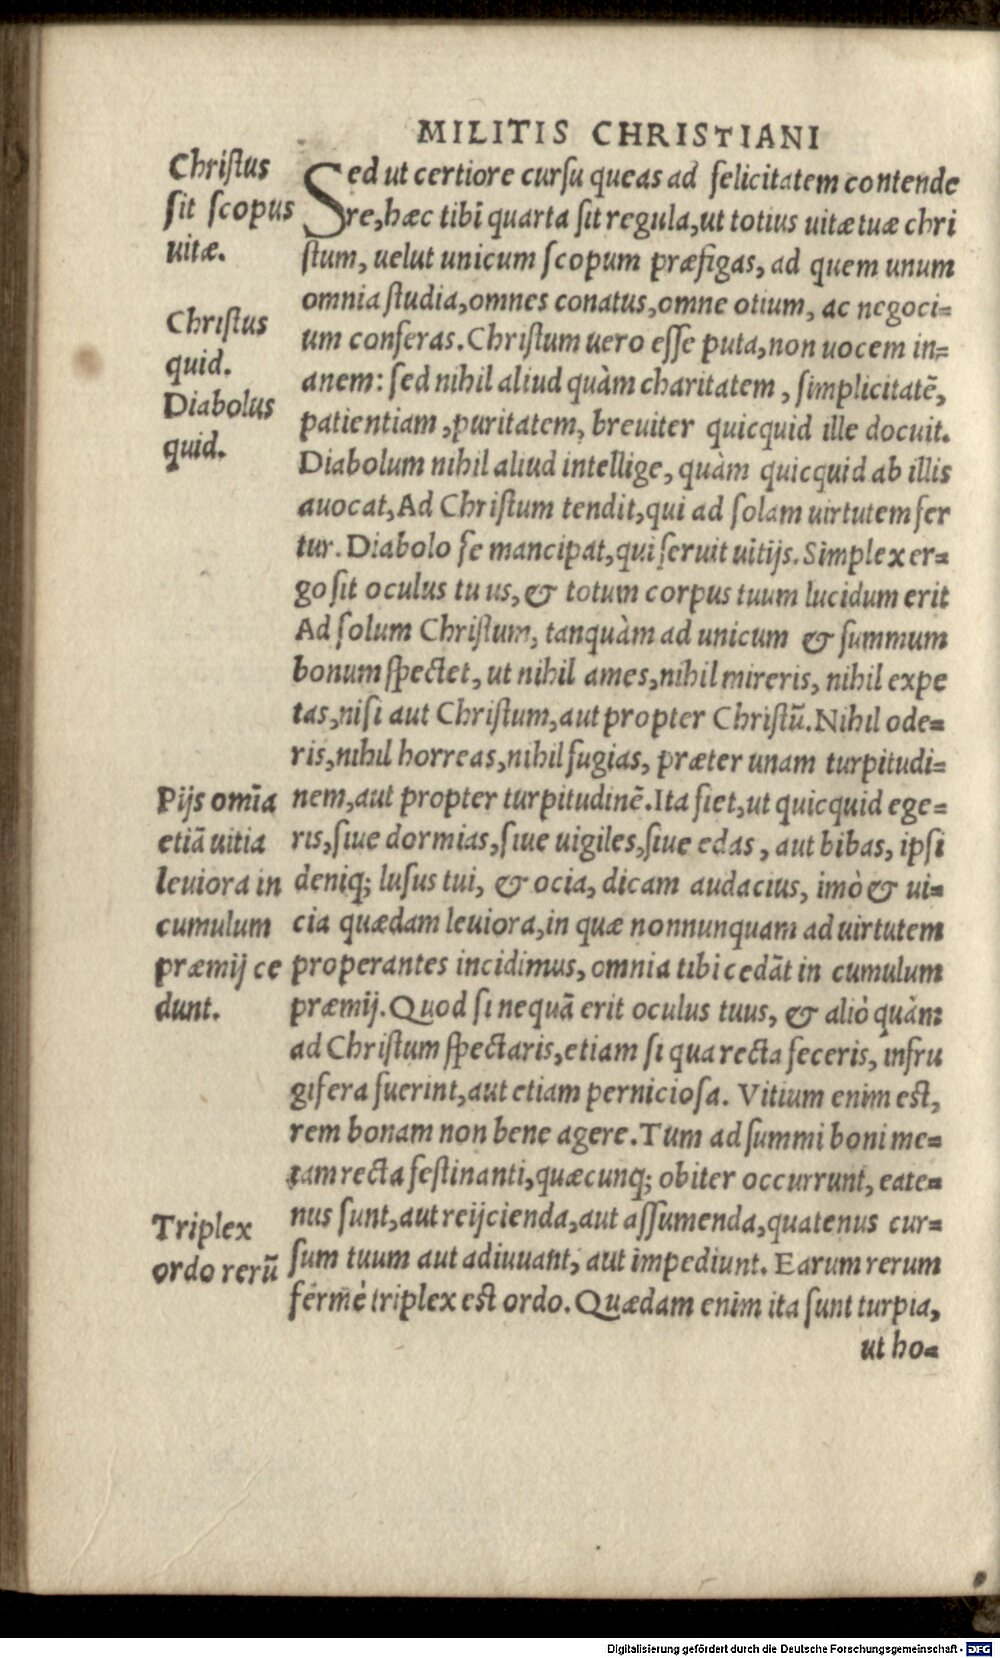 MILITIS CHRISTIANI
Christus
sit scopus
uitæ.
Christus
quid.
Diabolus
quid.
Pijs omīa
etiā uitia
leuiora in
cumulum
præmij ce
dunt.
Triplex
ordo rerū
Sed ut certiore cursu queas ad felicitatem contende
re, hæc tibi quarta sit regula, ut totius uitæ tuæ chri
stum, uelut unicum scopum præfigas, ad quem unum
omnia studia, omnes conatus, omne otium, ac negoci=
um conferas. Christum uero esse puta, non uocem in=
anem: sed nihil aliud quàm charitatem, simplicitatē,
patientiam, puritatem, breuiter quicquid ille docuit.
Diabolum nihil aliud intellige, quàm quicquid ab illis
auocat, Ad Christum tendit, qui ad solam uirtutem fer
tur. Diabolo se mancipat, qui seruit uitijs. Simplex er=
go sit oculus tu us, & totum corpus tuum lucidum erit
Ad solum Christum, tanquàm ad unicum & summum
bonum spectet, ut nihil ames, nihil mireris, nihil expe
tas, nisi aut Christum, aut propter Christū. Nihil ode=
ris, nihil horreas, nihil fugias, præter unam turpitudi=
nem, aut propter turpitudinē. Ita fiet, ut quicquid ege=
ris, siue dormias, siue uigiles, siue edas, aut bibas, ipsi
deniq; lusus tui, & ocia, dicam audacius, imò & ui=
cia quædam leuiora, in quæ nonnunquam ad uirtutem
properantes incidimus, omnia tibi cedāt in cumulum
præmij. Quod si nequā erit oculus tuus, & aliò quàm
ad Christum spectaris, etiam si qua recta feceris, infru
gifera fuerint, aut etiam perniciosa. Vitium enim est,
rem bonam non bene agere. Tum ad summi boni me=
tam recta festinanti, quæcunq; obiter occurrunt, eate=
nus sunt, aut reijcienda, aut assumenda, quatenus cur=
sum tuum aut adiuuant, aut impediunt. Earum rerum
fermè triplex est ordo. Quædam enim ita sunt turpia,
ut ho=
Digitalisierung gefördert durch die Deutsche Forschungsgemeinschaft - DFG